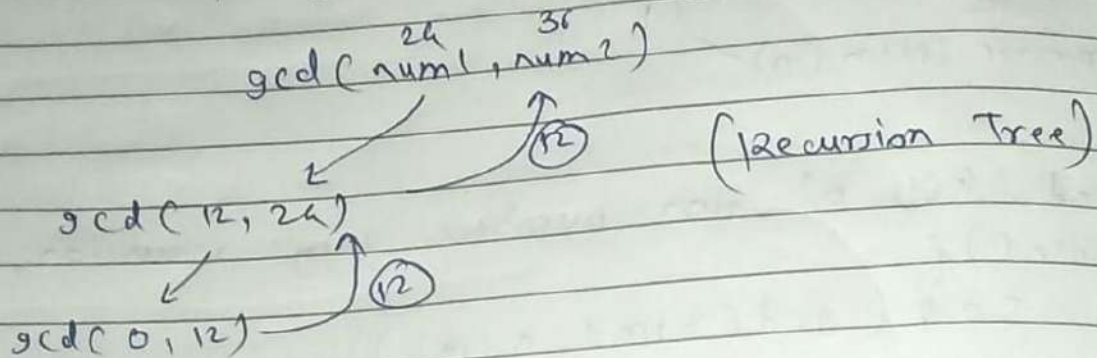 24 36
gcd(num1, num2)
12 (Recursion Tree)
gcd(12, 24)
12
gcd(0, 12)